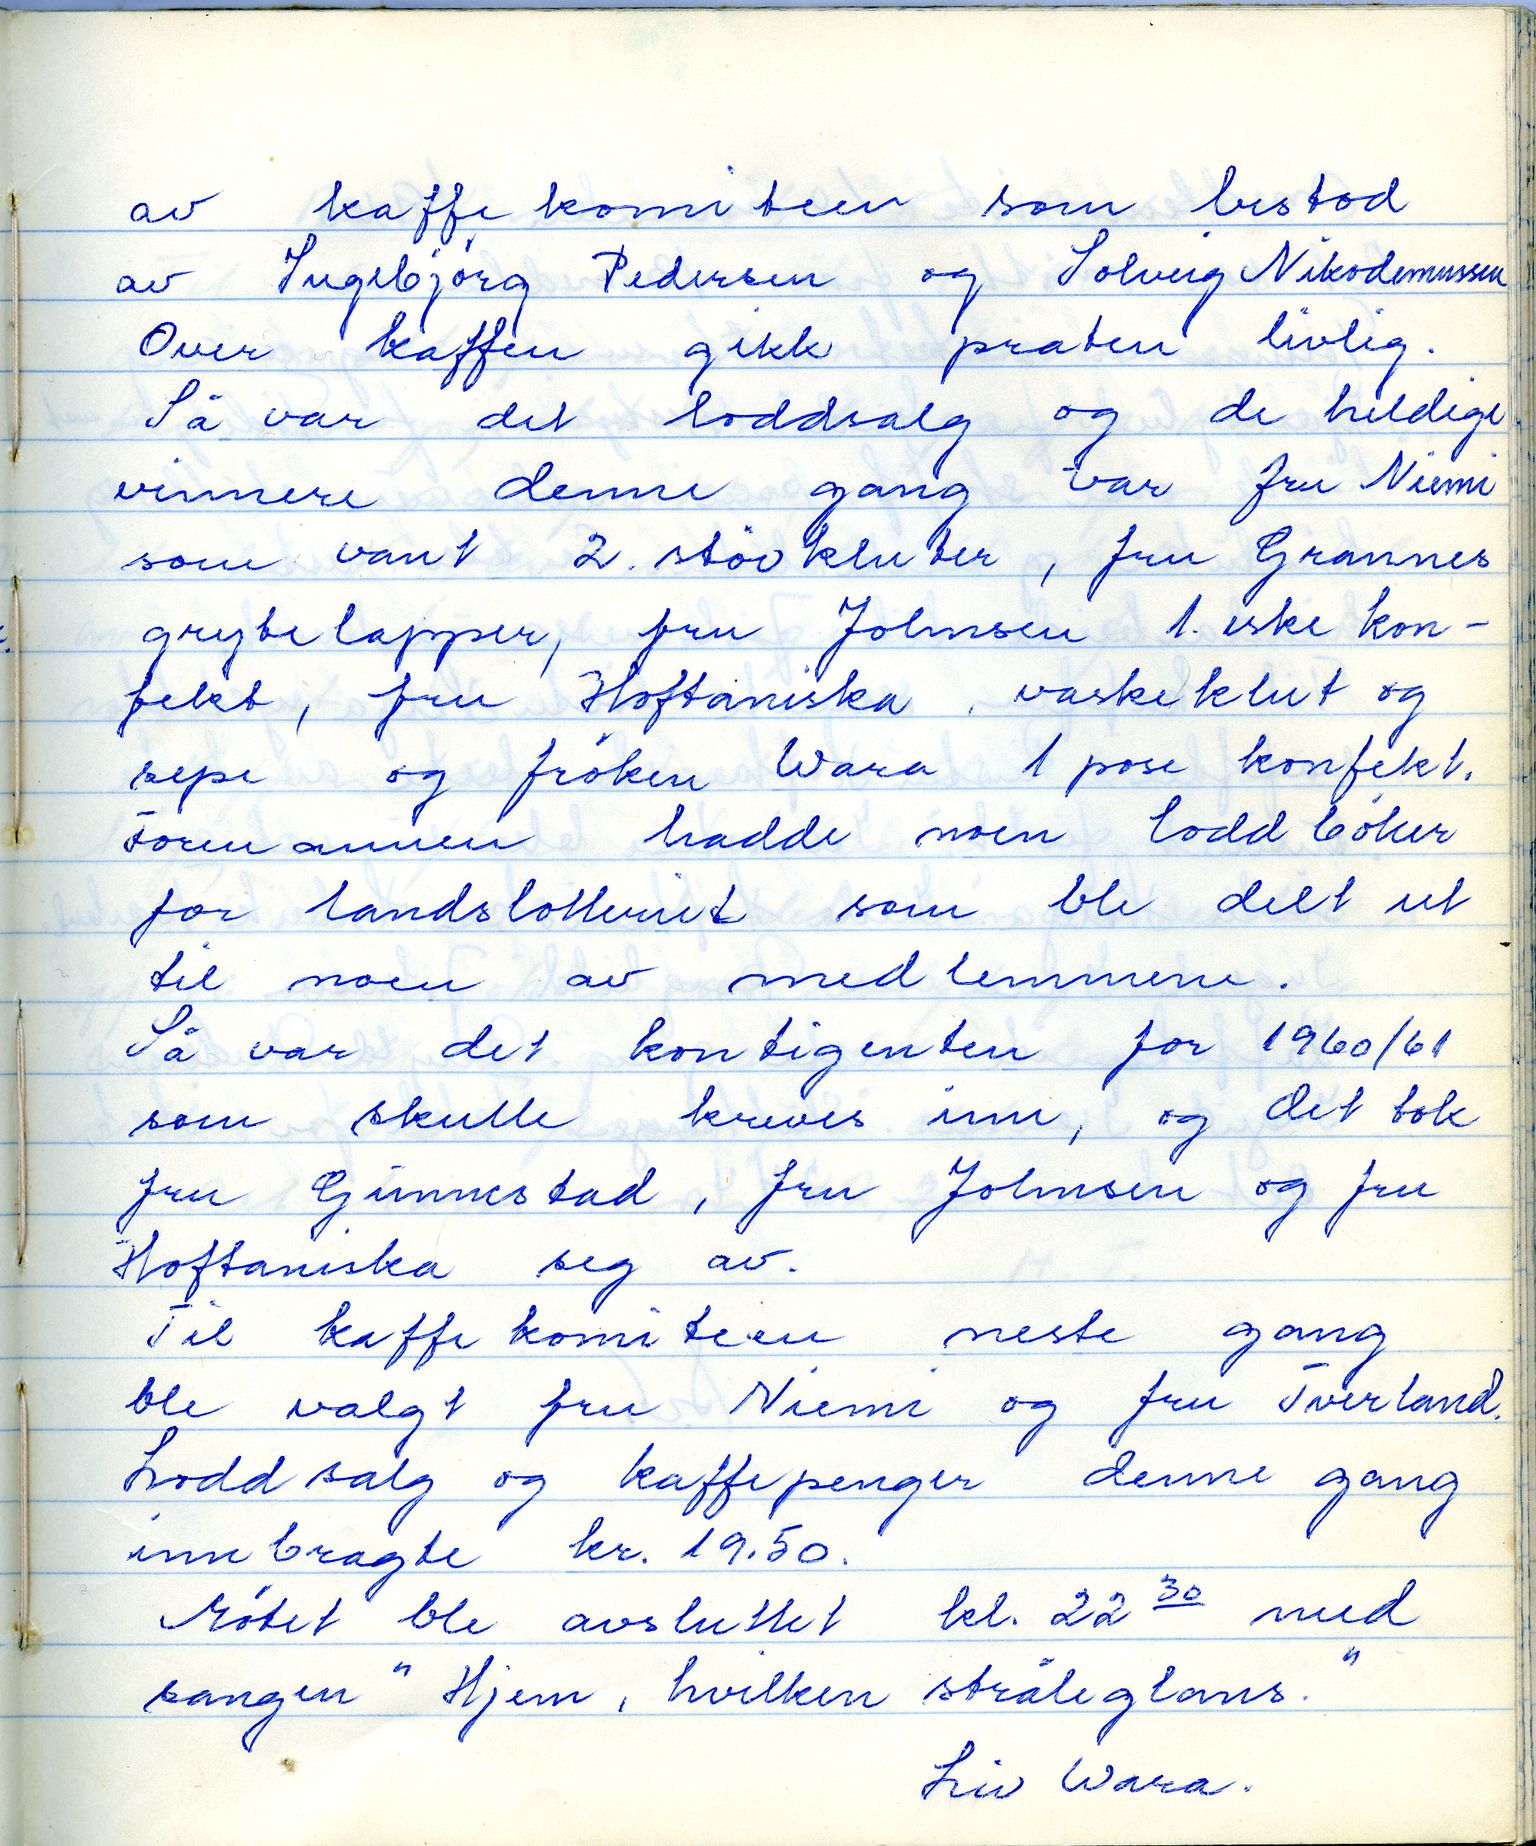 av kaffekomiteen som bestod
av Ingebjörg Pedersen og Solveig Nikodemussen
Over kaffen gikk praten livlig.
Så var det loddsalg og de heldige
vinnere denne gang var fru Niemi
som vant 2. stövkluter, fru Grannes
grytelapper, fru Johnsen 1. eske kon-
fekt, fru Hoftaniska, vaskeklut og
sepe og fröken Wara 1 pose konfekt.
Formannen hadde noen loddböker
for landslotteriet som ble delt ut
til noen av medlemmene.
Så var det kontigenten for 1960/61
som skulle kreves inn, og det tok
fru Ginnestad, fru Johnsen og fru
Hoftaniska seg av.
Til kaffekomiteen neste gang
ble valgt fru Niemi og fru Tverland.
Loddsalg og kaffepenger denne gang
innbragte kr. 19.50.
Mötet ble avsluttet kl. 22 30 med
sangen "Hjem, hvilken stråleglans."
Liv Wara.